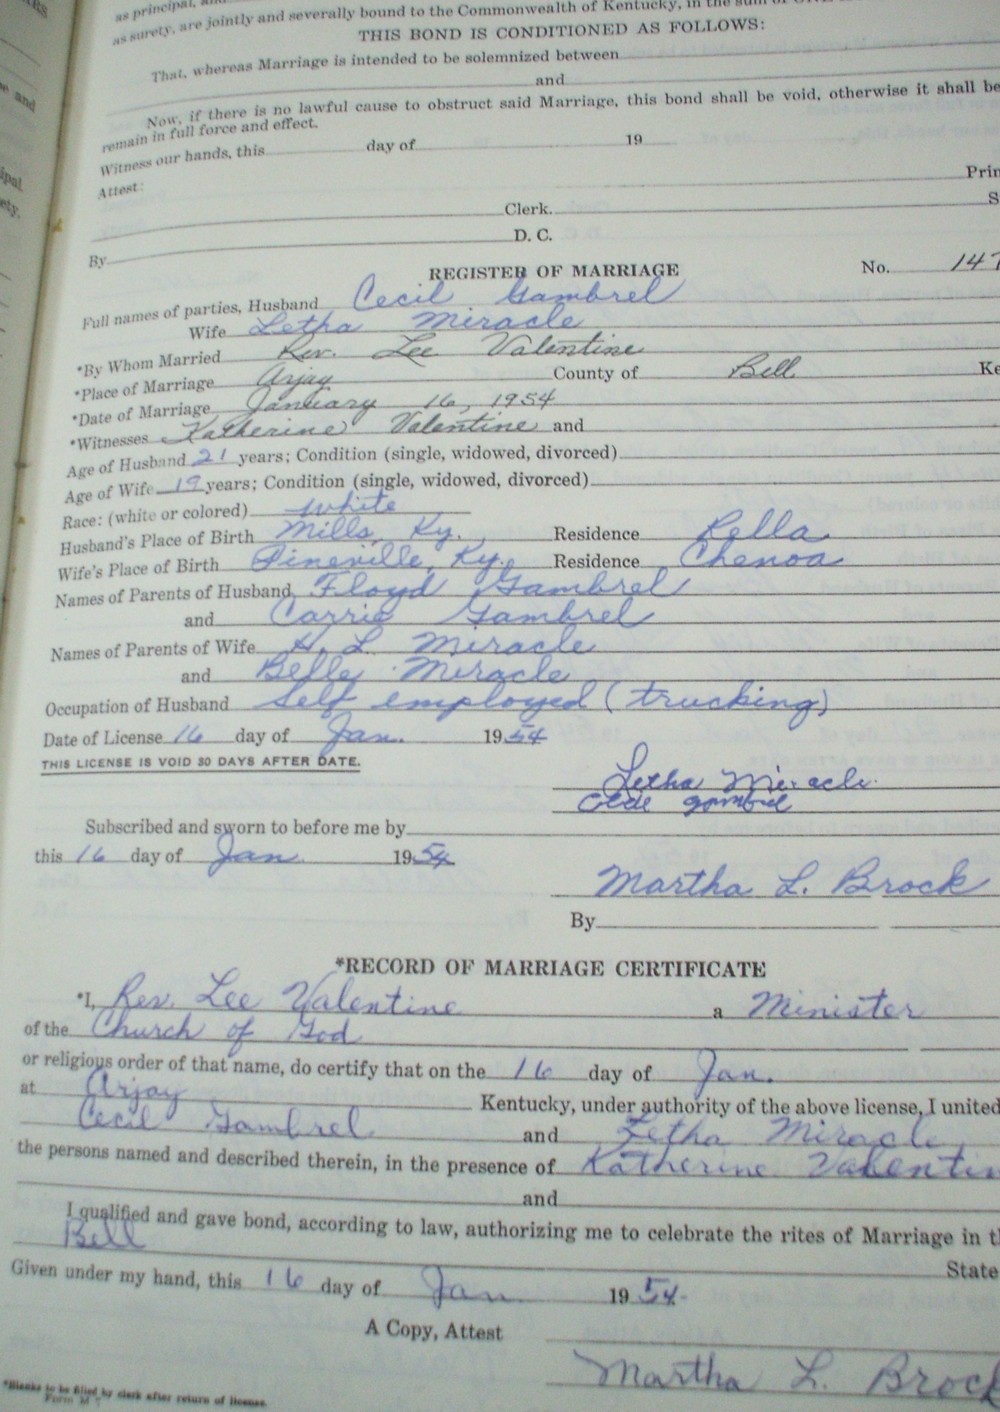 as principal, and
as surety, are jointly and severally bound to the Commonwealth of Kentucky, in the sum of
THIS BOND IS CONDITIONED AS FOLLOWS:
That, whereas Marriage is intended to be solemnized between
and
Now, if there is no lawful cause to obstruct said Marriage, this bond shall be void, otherwise it shall be
remain in full force and effect.
Witness our hands, this day of 19
Attest: Prin
Clerk. S
D. C.
By
REGISTER OF MARRIAGE No. 147
Full names of parties, Husband Cecil Gambrel
Wife Letha Miracle
*By Whom Married Rev. Lee Valentine
*Place of Marriage Arjay County of Bell Ke
*Date of Marriage January 16, 1954
*Witnesses Katherine Valentine and
Age of Husband 21 years; Condition (single, widowed, divorced)
Age of Wife 19 years; Condition (single, widowed, divorced)
Race: (white or colored) white
Husband's Place of Birth Mills, Ky. Residence Rella
Wife's Place of Birth Pineville, Ky. Residence Chenoa
Names of Parents of Husband Floyd Gambrel
and Carrie Gambrel
Names of Parents of Wife H. L. Miracle
and Belle Miracle
Occupation of Husband Self employed (trucking)
Date of License 16 day of Jan. 1954
THIS LICENSE IS VOID 30 DAYS AFTER DATE.
Letha Miracle
Cecil Gambrel
Subscribed and sworn to before me by
this 16 day of Jan 1954
Martha L. Brock
By
*RECORD OF MARRIAGE CERTIFICATE
*I, Rev. Lee Valentine a Minister
of the Church of God
or religious order of that name, do certify that on the 16 day of Jan.
at Arjay Kentucky, under authority of the above license, I united
Cecil Gambrel and Letha Miracle
the persons named and described therein, in the presence of Katherine Valentin
and
I qualified and gave bond, according to law, authorizing me to celebrate the rites of Marriage in th
Bell State
Given under my hand, this 16 day of Jan 1954
A Copy, Attest
Martha L. Brock
*Blanks to be filled by clerk after return of license.
Form M